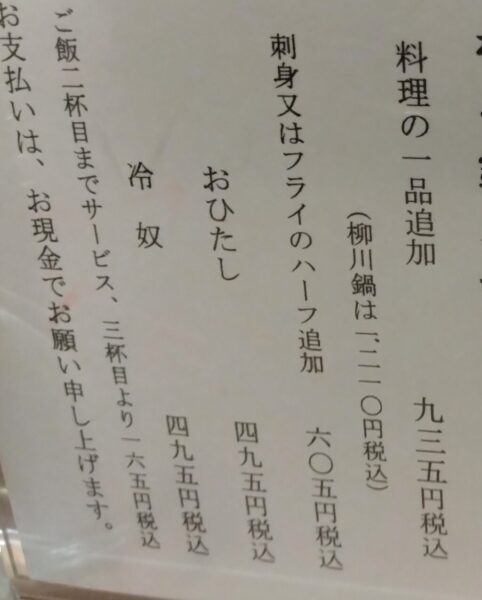 料理の一品追加 九三五円税込
(柳川鍋は一、二一〇円税込)
刺身又はフライのハーフ追加 六〇五円税込
おひたし 四九五円税込
冷奴 四九五円税込
ご飯二杯目までサービス、三杯目より一六五円税込
お支払いは、お現金でお願い申し上げます。